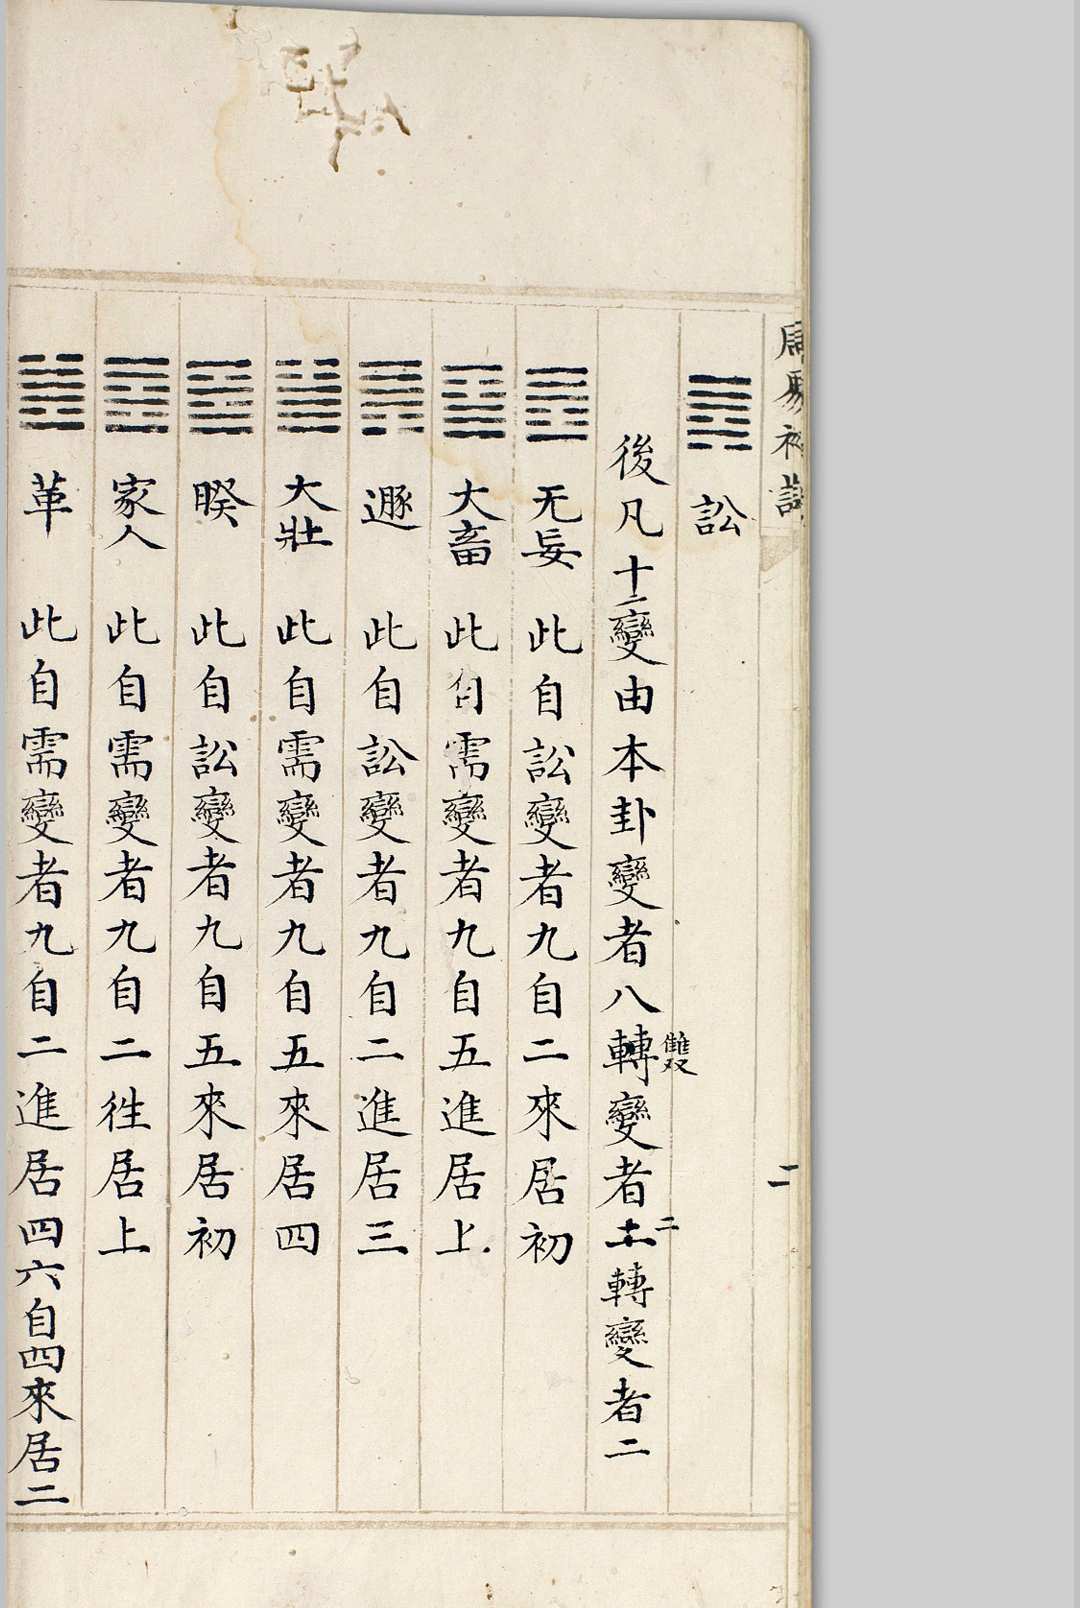 周易
二
䷅ 訟
後凡十二變由本卦變者八雙轉變者二轉變者二
䷘ 无妄 此自訟變者九自二來居初
䷙ 大畜 此自需變者九自五進居上
䷠ 遯 此自訟變者九自二進居三
䷡ 大壯 此自需變者九自五來居四
䷥ 睽 此自訟變者九自五來居初
䷤ 家人 此自需變者九自二徃居上
䷰ 革 此自需變者九自二進居四六自四來居二